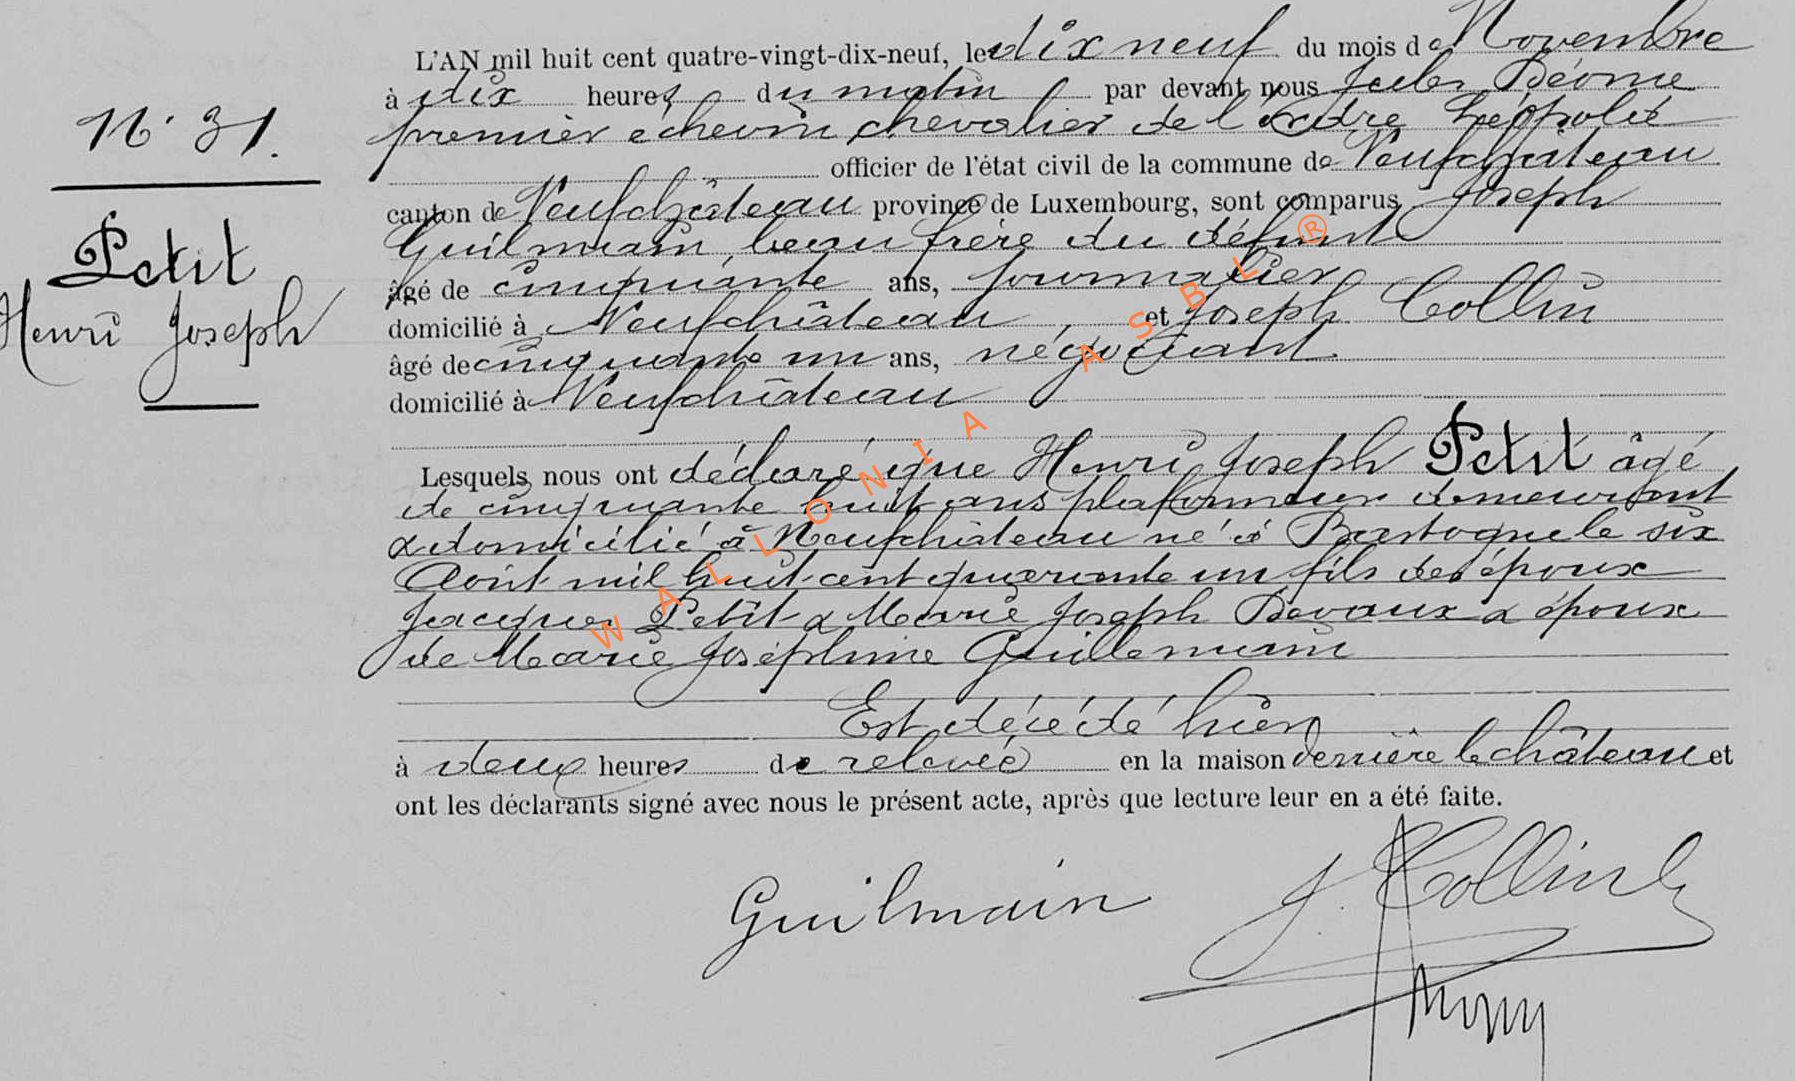 N° 31.
Petit
Henri Joseph
L'AN mil huit cent quatre-vingt-dix-neuf, le dix neuf du mois de Novembre
à dix heures du matin par devant nous Jules
premier échevin chevalier de l'ordre Léopold
officier de l'état civil de la commune de Neufchâteau
canton de Neufchâteau province de Luxembourg, sont comparus Joseph
Guilmain, beau frère du défunt
âgé de cinquante ans, journalier
domicilié à Neufchâteau, et Joseph Collin
âgé de cinquante un ans, négociant
domicilié à Neufchâteau
Lesquels nous ont déclaré que Henri Joseph Petit âgé
de cinquante huit ans plafonneur demeurant
& domicilié à Neufchâteau né à Bastogne le six
Août mil huit cent quarante un fils des époux
Jacques Petit & Marie Joseph Devaux & époux
de Marie Joséphine Guillemain
Est décédé hier
à deux heures de relevée en la maison derrière le château et
ont les déclarants signé avec nous le présent acte, après que lecture leur en a été faite.
Guilmain
J. Collin
WALLONIA ASBL ®